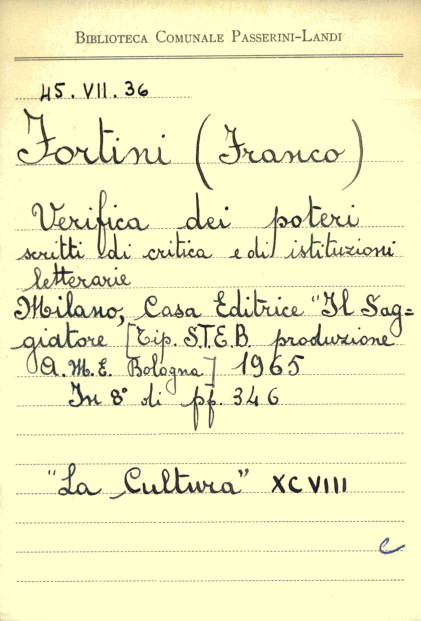 BIBLIOTECA COMUNALE PASSERINI-LANDI
45. VII. 36
Fortini (Franco)
Verifica dei poteri
scritti di critica e di istituzioni
letterarie
Milano, Casa Editrice "Il Sag=
giatore [Tip. S.T.E.B. produzione
A.M.E. Bologna] 1965
In 8° di pp. 346
"La Cultura" XCVIII
e